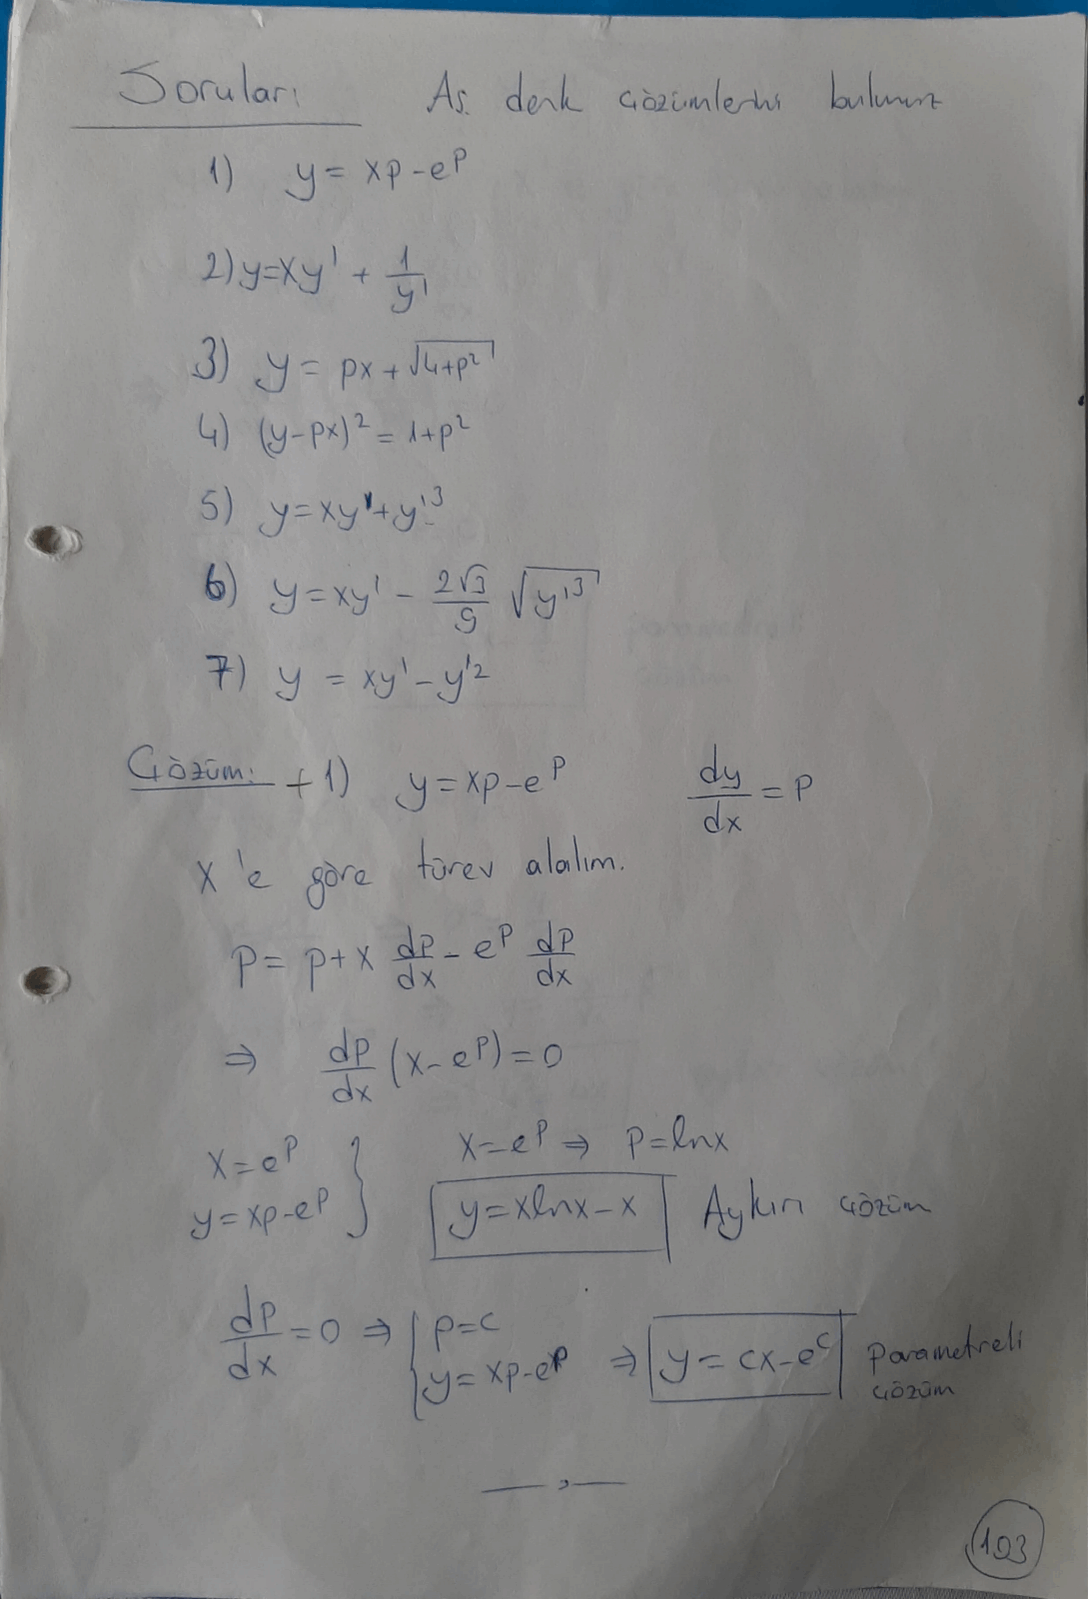 Soruları As. denk çözümlerini bulunuz
1) y = xp - e^p
2) y = xy' + 1/y'
3) y = px + √(4+p²)
4) (y-px)² = 1+p²
5) y = xy' + y'³
6) y = xy' - (2√3/9) √(y'³)
7) y = xy' - y'²
Çözüm: +1) y = xp - e^p dy/dx = p
x'e göre türev alalım.
p = p + x dp/dx - e^p dp/dx
⇒ dp/dx (x - e^p) = 0
x = e^p } x = e^p ⇒ p = lnx
y = xp - e^p y = xlnx - x Aykırı çözüm
dp/dx = 0 ⇒ { p = c
y = xp - e^p ⇒ y = cx - e^c parametreli
çözüm
103